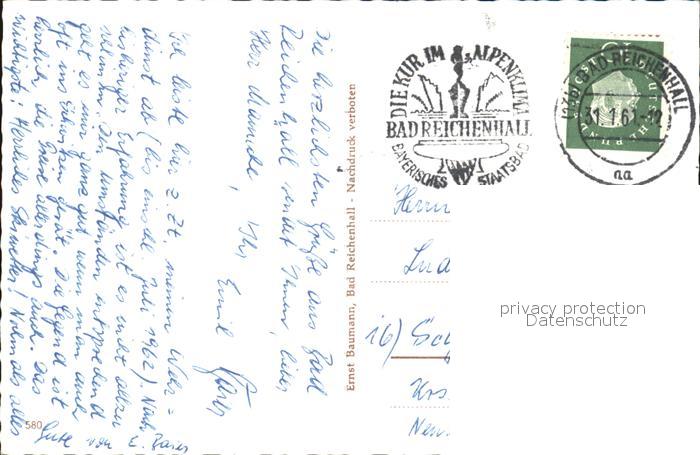 Die herzlichsten Grüße aus Bad
Reichenhall sendet Ihnen, lieber
Herr Mamede, Ihr Emil
Ich leiste hier z. Zt. meinen Wehr=
dienst ab (bis Ende Juli 1962). Nach
bisheriger Erfahrung ist es nicht allzu
schlimm. Den Umständen entsprechend
geht es mir ganz gut wenn man auch
oft ins Schwitzen gerät. Die Gegend ist
herrlich, die Preise allerdings auch. Das
Wichtigste: Herrliches Skiwetter! Nochmals alles
Gute von E.
580
Ernst Baumann, Bad Reichenhall - Nachdruck verboten
DIE KUR IM ALPENKLIMA
BAD REICHENHALL
BAYERISCHES STAATSBAD
(13b) BAD REICHENHALL
31.1.61-12
aa
Herrn
16)
privacy protection
Datenschutz